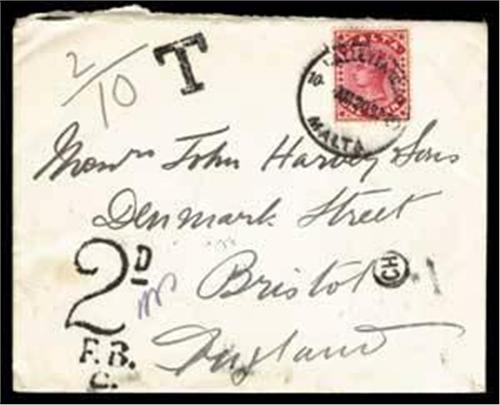 2/10
T
MALTA
VALLETTA
10-
MALTA
Messrs John Harvey & Sons
Denmark Street
Bristol
CH
England
2D
F.B.
C.